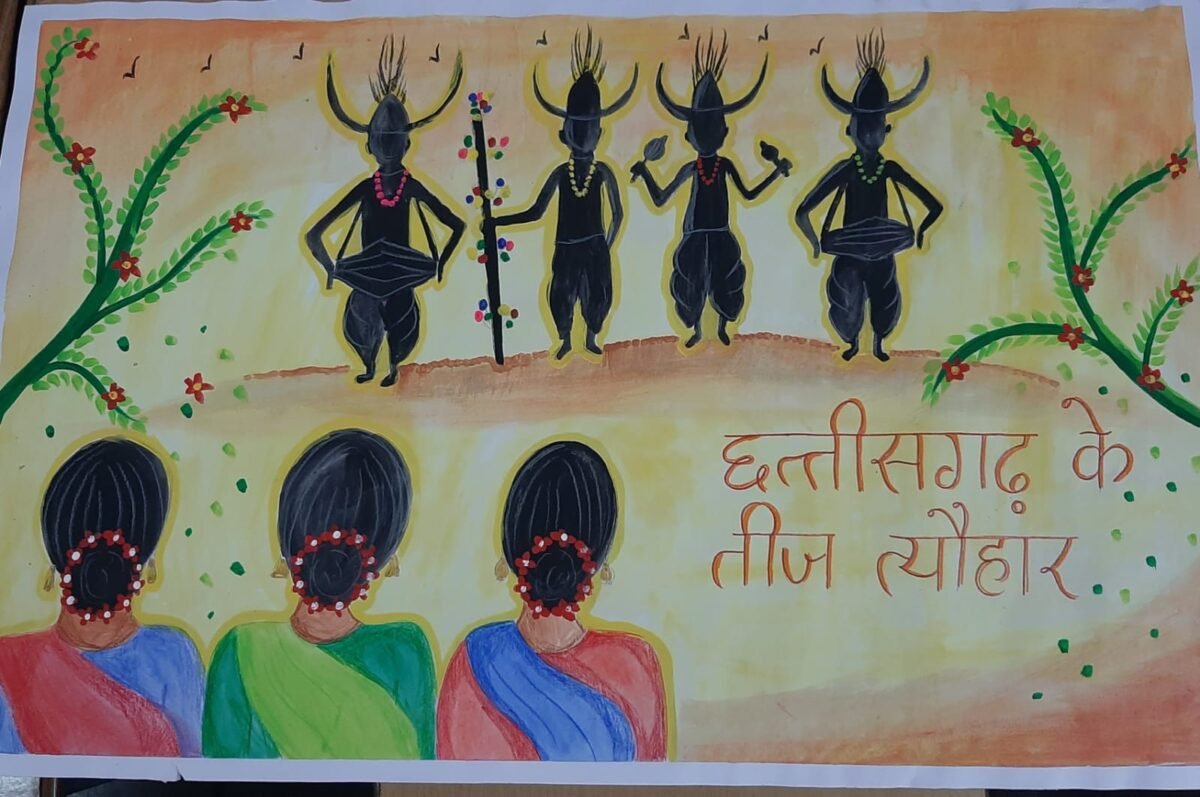 छत्तीसगढ़ के
तीज त्यौहार